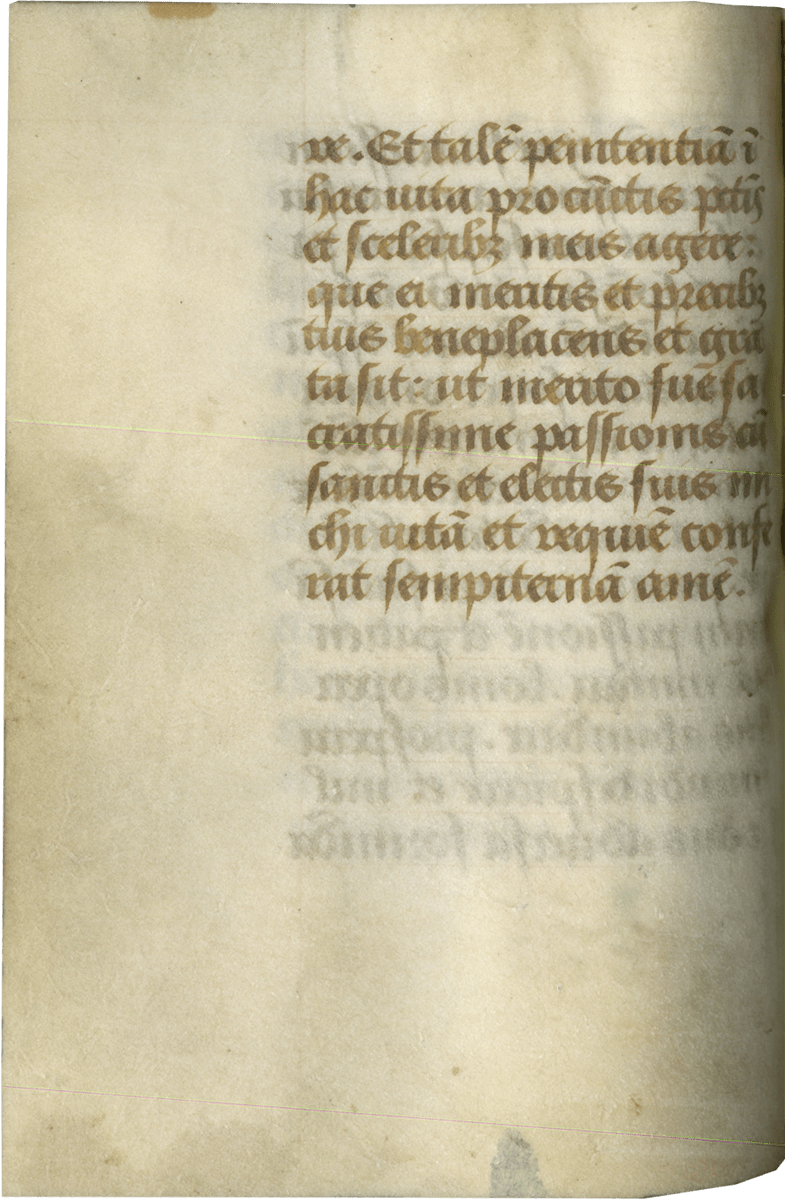 re. Et talē penitentiā ī
hac uita pro cūctis pctīs
et sceleribꝫ meis agere:
que ei meritis et precibꝫ
tuis beneplacens et gra
ta sit: ut merito sue sa
cratissime passionis cū
sanctis et electis suis mi
chi uitā et requiē confe
rat sempiternā amē.